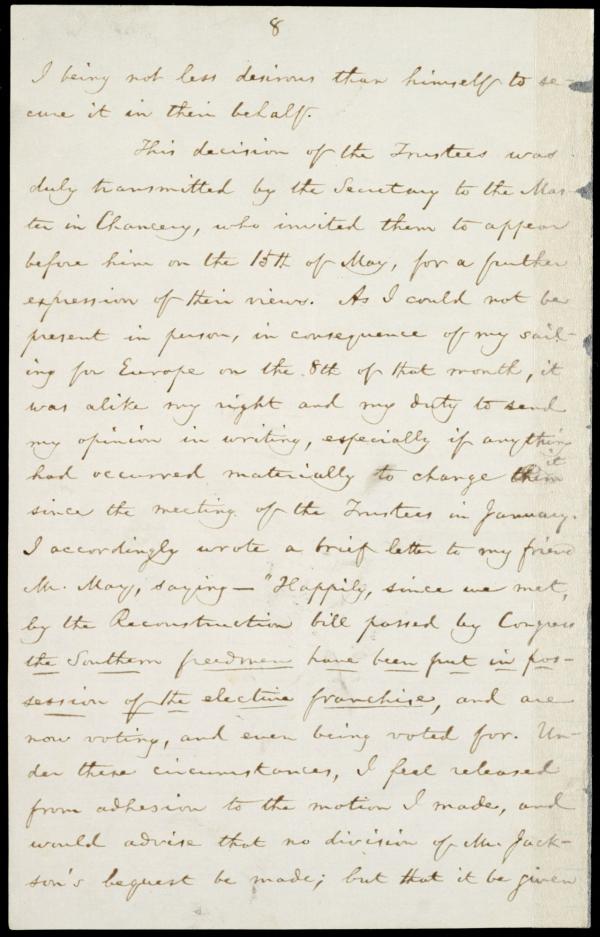 8
I being not less desirous than himself to se-
cure it in their behalf.
This decision of the Trustees was
duly transmitted by the Secretary to the Mas-
ter in Chancery, who invited them to appear
before him on the 15th of May, for a further
expression of their views. As I could not be
present in person, in consequence of my sail-
ing for Europe on the 8th of that month, it
was alike my right and my duty to send
my opinion in writing, especially if anything
had occurred materially to change it
since the meeting of the Trustees in January.
I accordingly wrote a brief letter to my friend
Mr. May, saying— "Happily, since we met,
by the Reconstruction bill passed by Congress
the Southern freedmen have been put in pos-
session of the elective franchise, and are
now voting, and even being voted for. Un-
der these circumstances, I feel released
from adhesion to the motion I made, and
would advise that no division of Mr. Jack-
son's bequest be made; but that it be given